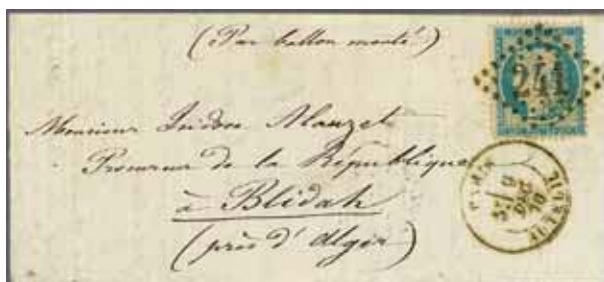 (Par ballon monté)
241
Monsieur Isidore Alauzet
Procureur de la République
à Blidah
(près d'Alger)
PARIS
AUTEUIL